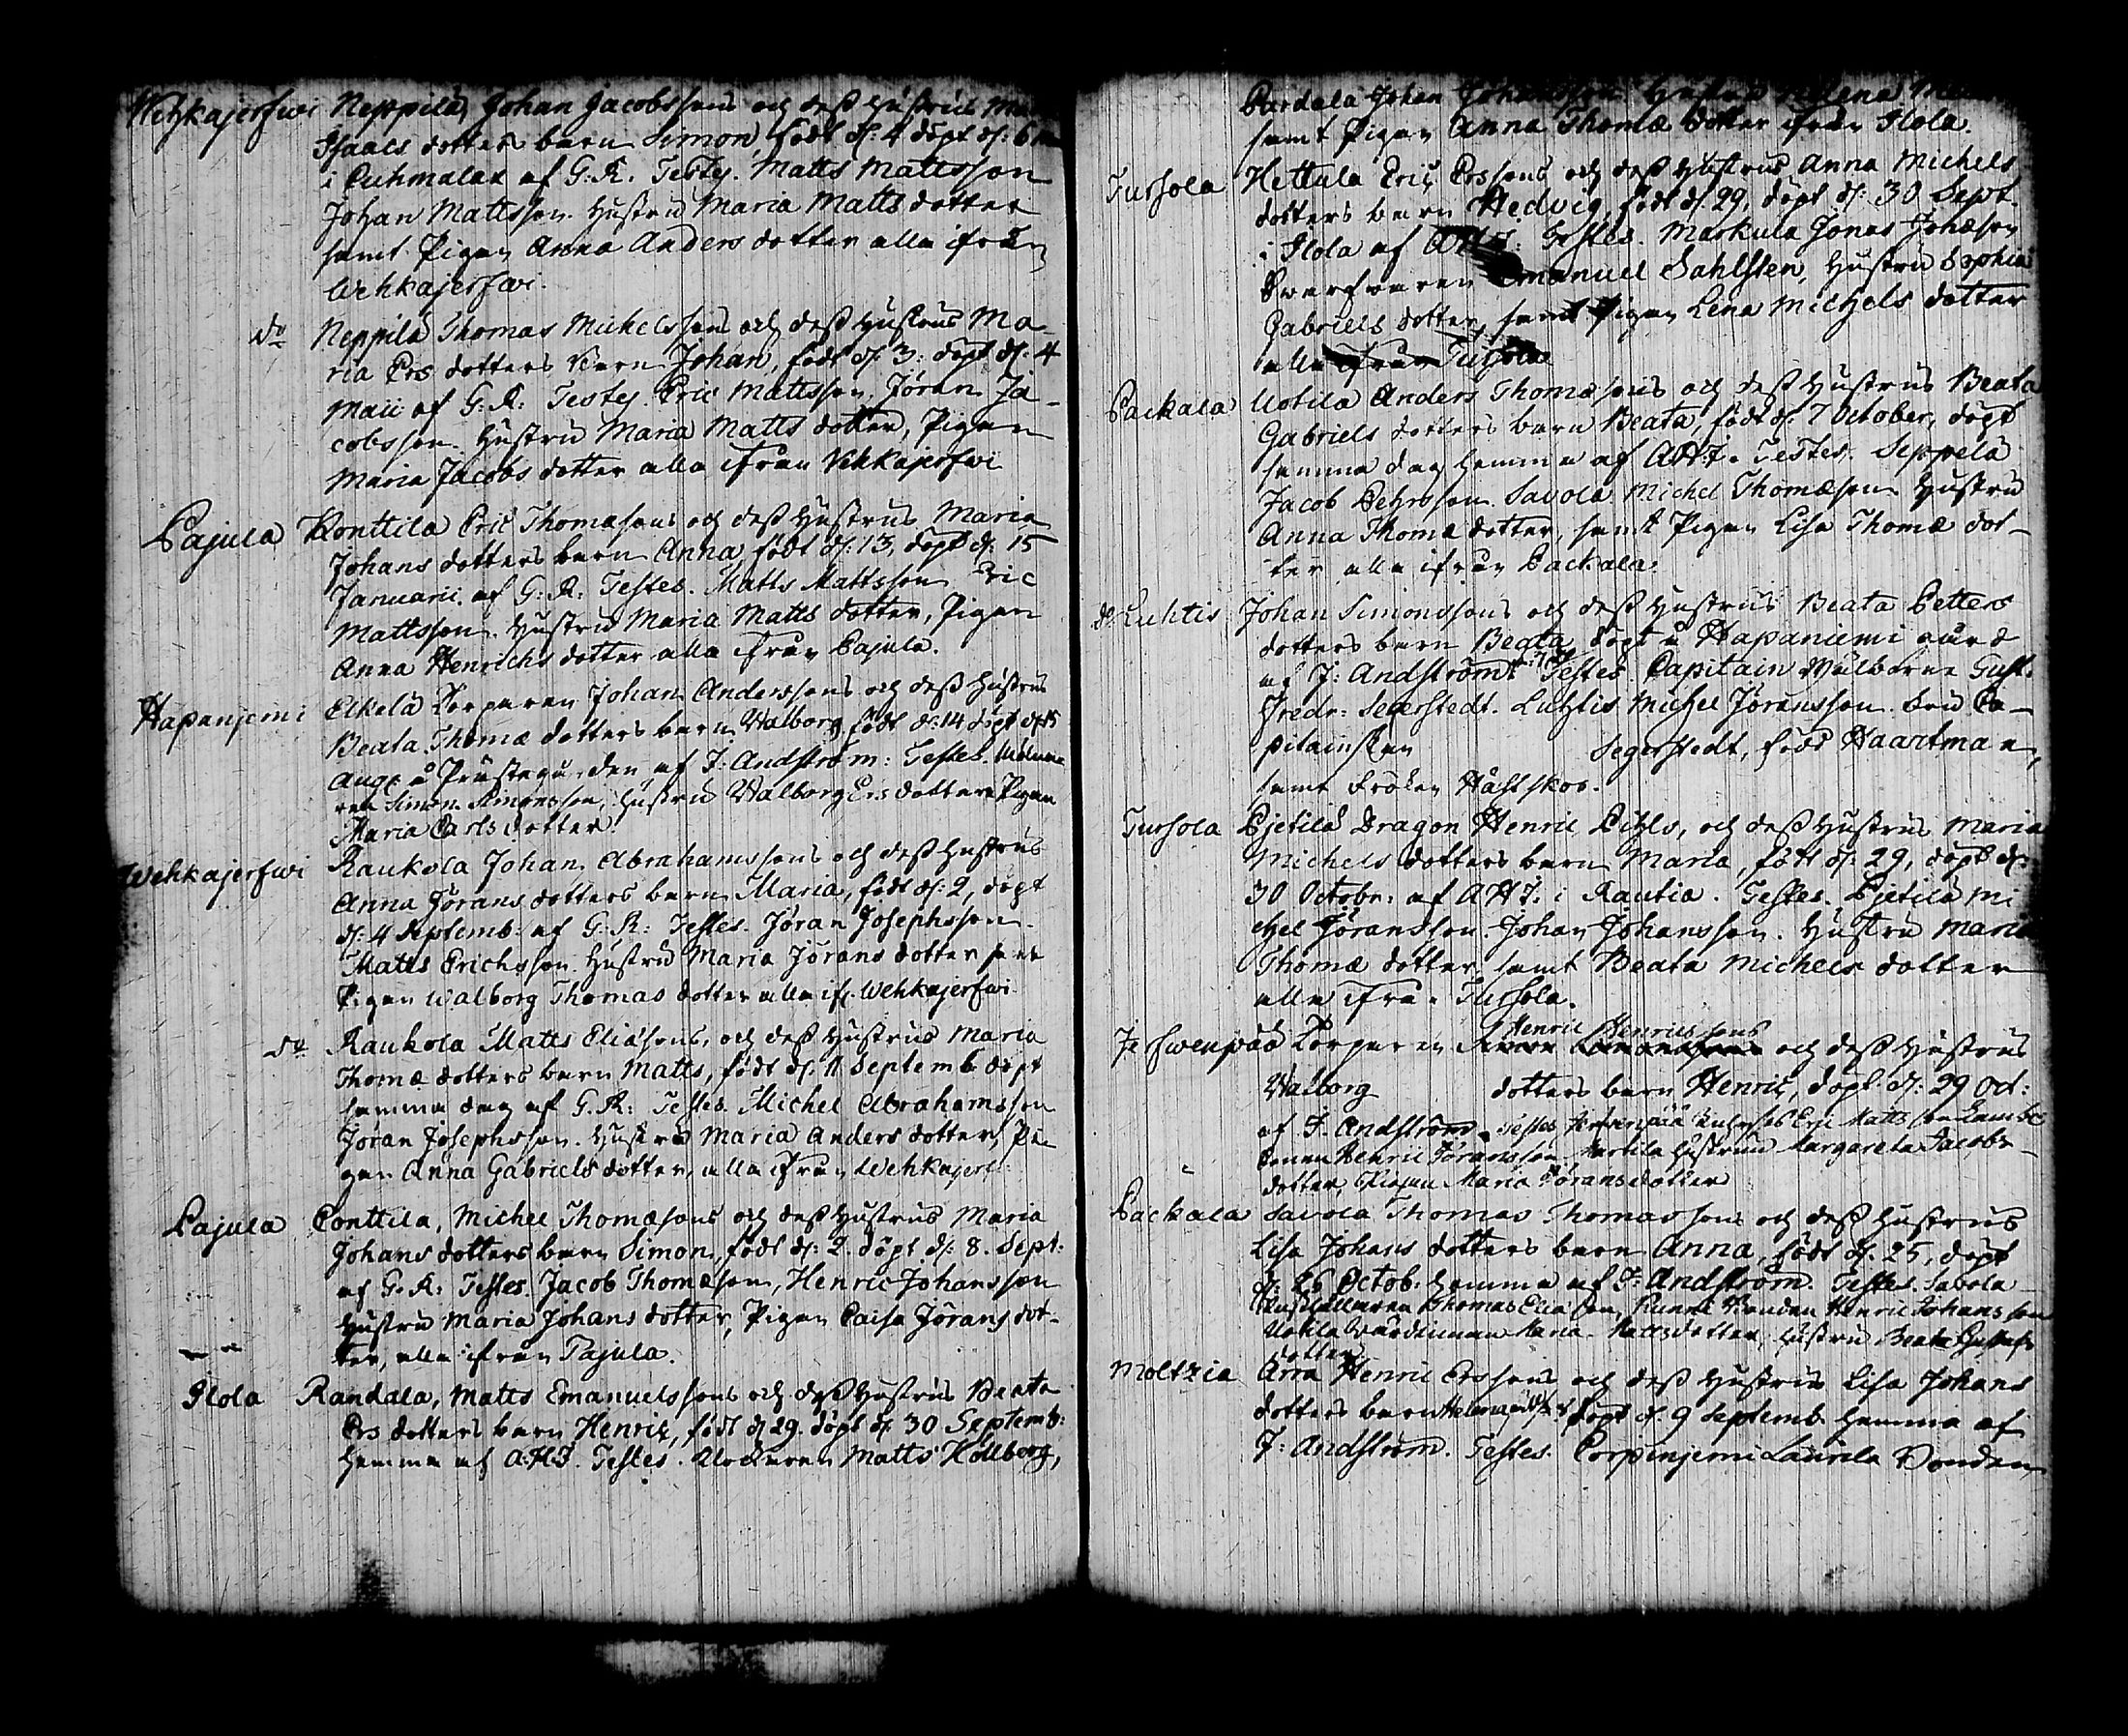 Wehkajerfwi Neppilä, Johan Jacobssons och dess hustrus
Isaacs dotters barn Simon, födt d: 4 döpt d: 6
i Puhmalax af G.R. Testes. Matts Mattsson
Johan Mattsson. hustru Maria Matts dotter
samt Pigan Anna Anders dotter alla ifrån
Wehkajerfwi.
do Neppilä Thomas Michelssons och dess hustrus Ma-
ria Ers dotters barn Johan, födt d: 3. döpt d: 4
Maii af G.R. Testes. Eric Mattsson, Jöran Ja-
cobsson. hustru Maria Matts dotter, Pigan
Maria Jacobs dotter alla ifrån Wehkajerfwi
Pajula Konttila Eric Thomæsons och dess hustrus Maria
Johans dotters barn Anna, födt d: 13, döpt d: 15
Januarii. af G.R: Testes. Matts Mattsson Eric
Mattsson. hustru Maria Matts dotter, Pigan
Anna Henrichs dotter alla ifrån Pajula.
Hapanjemi Eikelä Torparen Johan Anderssons och dess hustrus
Beata Thomæ dotters barn Walborg födt d: 14 döpt d: 15
Aug: å Prästegården af J: Andström: Testes.
Simon Simonsson, hustru Walborg Ers dotter Pigan
Maria Carls dotter
Wehkajerfwi Raukola Johan Abrahamssons och dess hustrus
Anna Jörans dotters barn Maria, födt d: 2, döpt
d: 4 Septemb: af G.R: Testes. Jöran Josephsson.
Matts Erichsson. hustru Maria Jörans dotter samt
Pigan Walborg Thomas dotter alla ifr. Wehkajerfwi
do Raukola Matts Eliæsons, och dess hustrus Maria
Thomæ dotters barn Matts, födt d: 11 Septemb. döpt
samma dag af G.R: Testes. Michel Abrahamsson
Jöran Josephsson. hustru Maria Anders dotter, Pi-
gan Anna Gabriels dotter, alla ifrån Wehkajerf:
Pajula Conttila, Michel Thomæsons och dess hustrus Maria
Johans dotters barn Simon, födt d: 2. döpt d: 8. Sept:
af G.R: Testes. Jacob Thomæson, Henric Johansson
hustru Maria Johans dotter, Pigan Caisa Jörans dot-
ter, alla ifrån Pajula.
Ilola Randala, Matts Emanuelssons och dess hustrus Beata
Ers dotters barn Henric, födt d 29. döpt d: 30 Septemb:
hemma af A.H.I. Testes. Klockaren Matts Hollborg,
Pardala Johan Johansson hustru Helena
samt Pigan Anna Thomæ dotter ifrån Ilola.
Tursola Hettula Eric Erssons och dess hustrus Anna Michels
dotters barn Hedvig, födt d 29, döpt d: 30 Sept.
i Ilola af Testes. Markula Jonas Johæson
Emanuel Sahlsten, hustru Sophia
Gabriels dotter, samt Pigan Lena Michels dotter
alla ifrån Tursola
Packala Uotila Anders Thomæsons och dess hustrus Beata
Gabriels dotters barn Beata, födt d: 7 October, döpt
samma dag hemma af A.H.I. Testes. Seppelä
Jacob Pehrsson. Savola Michel Thomæson. hustru
Anna Thomæ dotter, samt Pigan Lisa Thomæ dot-
ter alla ifrån Packala.
do Luhtis Johan Simonssons och dess hustrus Beata Petters
dotters barn Beata döpt å Hapaniemi gård
af J: Andström Testes. Capitain Wälborne Gust.
Fredr: Segerstedt. Luhtis Michel Jöransson. Fru Ca-
pitainskan Segerstedt, född Haartman,
samt Fröken Hästsko.
Tursola Pjetilä Dragon Henric Pihls, och dess hustrus Maria
Michels dotters barn Maria, födt d: 29, döpt d:
30 Octobr: af AHI: i Rautia. Testes. Pjetilä Mi
chel Jöransson. Johan Johansson. hustru Maria
Thomæ dotter, samt Beata Michels dotter
alla ifrån Tursola.
Henric Henricssons
Jerfwenpää Torparen och dess hustrus
Walborg dotters barn Henric, döpt d: 29 Oct:
af J. Andström. Testes Jerfvenpää Eric Mattsson
Henric Jöransson hustru Margareta Jacobs
dotter, Pigan Maria Jöransdotter
Packala Savola Thomas Thomassons och dess hustrus
Lisa Johans dotters barn Anna, födt d. 25, döpt
d: 26 Octob. hemma af J: Andström. Testes. Savola
Rusthållaren Thomas Eliæson, Bonden Henric Johansson
Uotila Wärdinnan Maria Mattsdotter, hustru Beata Gustafs
dotter
Moltzia Arra Henric Erssons och dess hustrus Lisa Johans
dotters barn Helena döpt d. 9 Septemb. hemma af
J: Andström. Testes. Corpinjemi Laurila Bonden